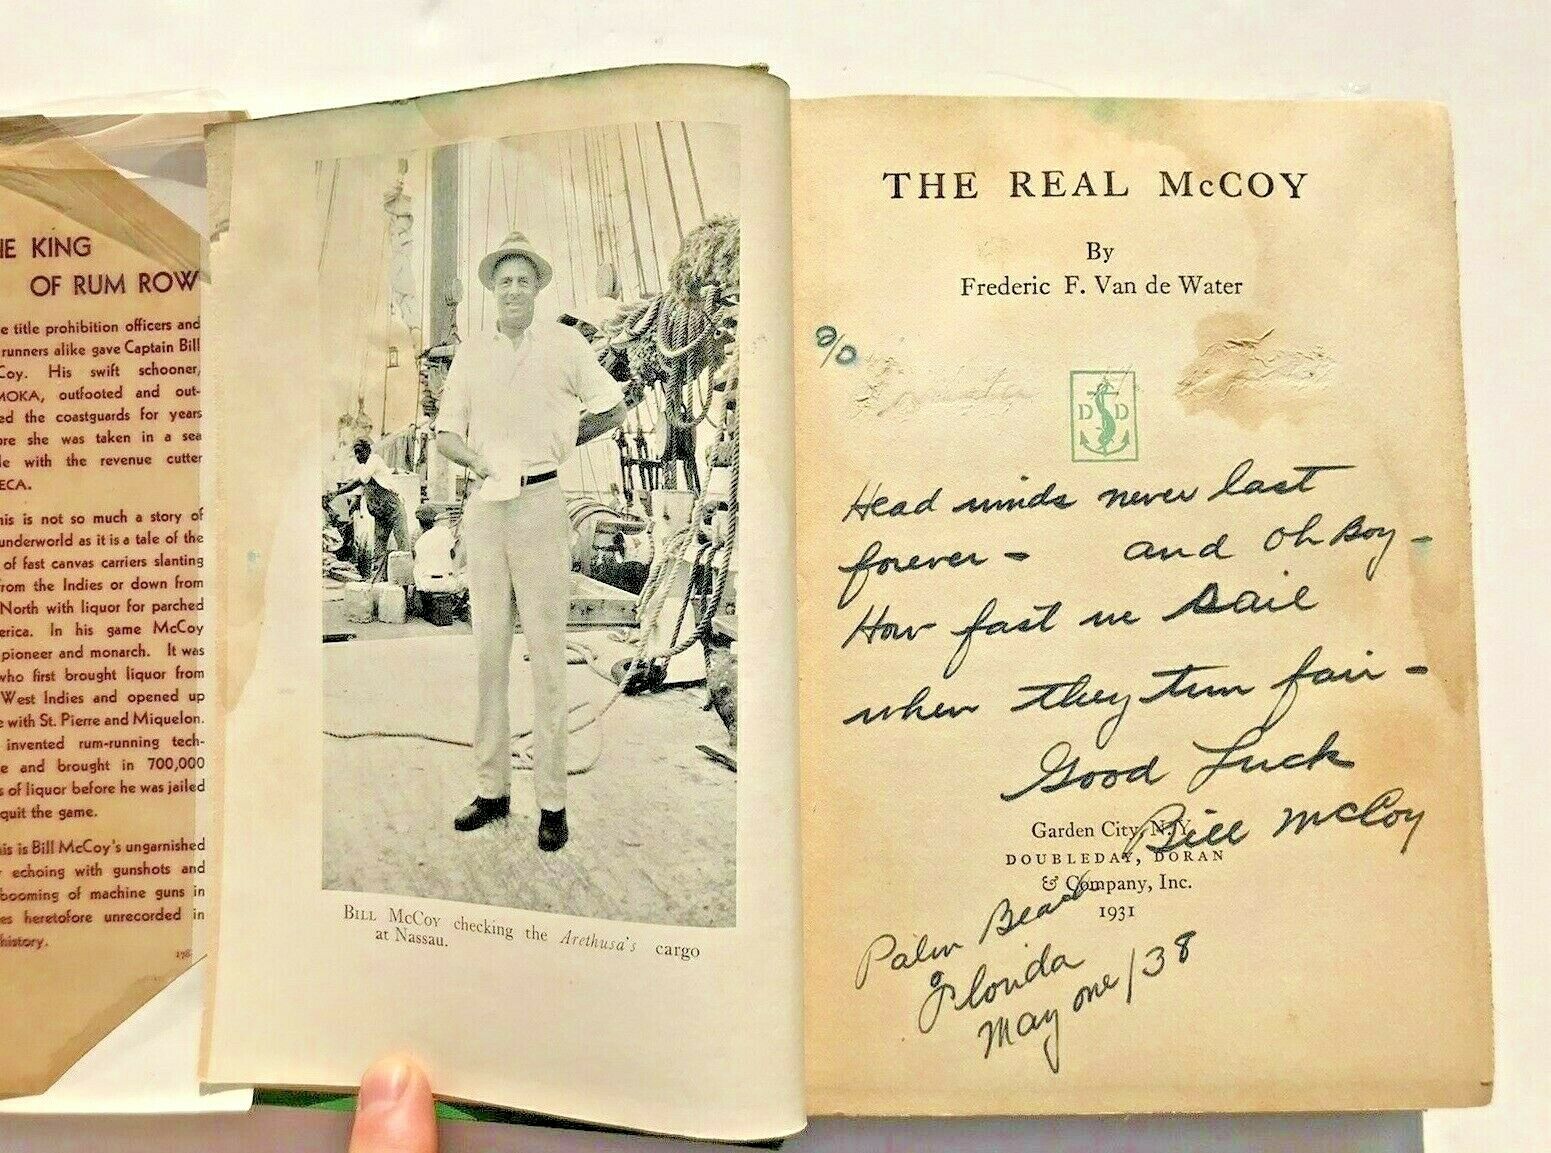 IE KING
OF RUM ROW
e title prohibition officers and
runners alike gave Captain Bill
Coy. His swift schooner,
MOKA, outfooted and out-
ed the coastguards for years
ore she was taken in a sea
le with the revenue cutter
ECA.
his is not so much a story of
underworld as it is a tale of the
of fast canvas carriers slanting
from the Indies or down from
North with liquor for parched
erica. In his game McCoy
pioneer and monarch. It was
who first brought liquor from
West Indies and opened up
e with St. Pierre and Miquelon.
invented rum-running tech-
e and brought in 700,000
s of liquor before he was jailed
quit the game.
his is Bill McCoy's ungarnished
echoing with gunshots and
booming of machine guns in
es heretofore unrecorded in
history.
178
BILL McCOY checking the Arethusa's cargo
at Nassau.
THE REAL McCOY
By
Frederic F. Van de Water
D D
Head winds never last
forever - and oh Boy -
How fast we sail
when they turn fair -
Good Luck
Bill McCoy
Garden City, N.Y.
DOUBLEDAY, DORAN
& Company, Inc.
1931
Palm Beach
Florida
May one / 38